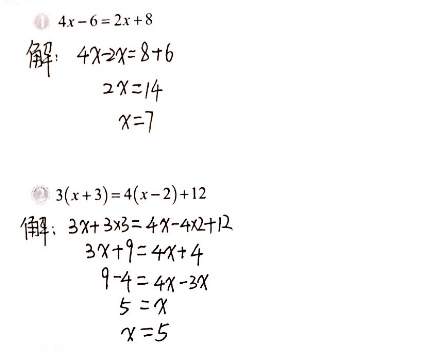 ① 4x-6=2x+8
解: 4x-2x=8+6
2x=14
x=7
② 3(x+3)=4(x-2)+12
解: 3x+3×3=4x-4×2+12
3x+9=4x+4
9-4=4x-3x
5=x
x=5